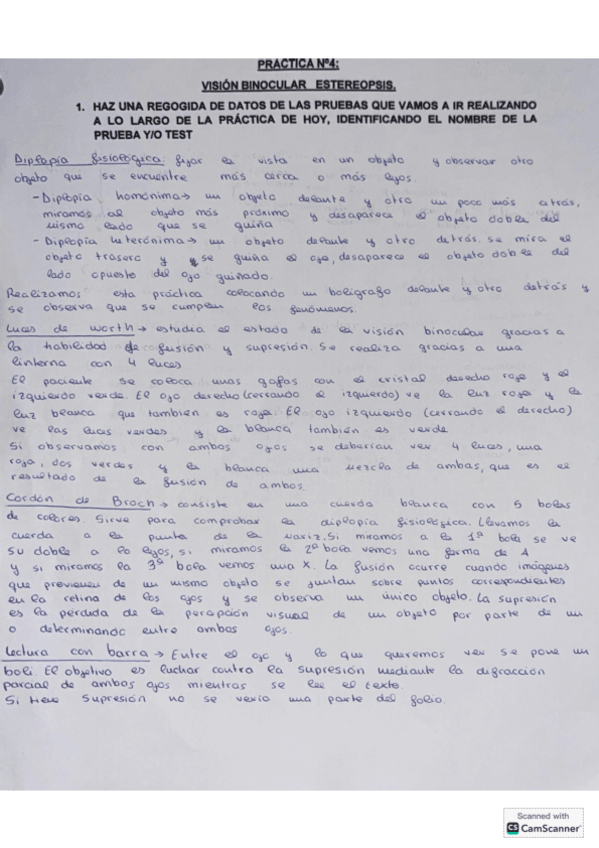 PRACTICA Nº4:
VISIÓN BINOCULAR ESTEREOPSIS.
1. HAZ UNA REGOGIDA DE DATOS DE LAS PRUEBAS QUE VAMOS A IR REALIZANDO
A LO LARGO DE LA PRÁCTICA DE HOY, IDENTIFICANDO EL NOMBRE DE LA
PRUEBA Y/O TEST
Diplopía fisiológica: fijar la vista en un objeto y observar otro
objeto que se encuentre más cerca o más lejos.
- Diplopía homónima → un objeto delante y otro un poco más atrás,
miramos al objeto más próximo y desaparece el objeto doble del
mismo lado que se guiña
- Diplopía heterónima → un objeto delante y otro detrás. se mira el
objeto trasero y se guiña el ojo, desaparece el objeto doble del
lado opuesto del ojo guiñado.
Realizamos esta práctica colocando un boligrafo delante y otro detrás y
se observa que se cumplen los fenómenos.
Luces de worth → estudia el estado de la visión binocular gracias a
la habilidad de fusión y supresión. Se realiza gracias a una
linterna con 4 luces
El paciente se coloca unas gafas con el cristal derecho rojo y el
izquierdo verde. El ojo derecho (cerrando el izquierdo) ve la luz roja y la
luz blanca que tambien es roja. El ojo izquierdo (cerrando el derecho)
ve las luces verdes y la blanca también es verde
Si observamos con ambos ojos se deberían ver 4 luces, una
roja, dos verdes y la blanca una mezcla de ambas, que es el
resultado de la fusión de ambos.
Cordón de Broch → consiste en una cuerda blanca con 5 bolas
de colores. Sirve para comprobar la diplopía fisiológica. Llevamos la
cuerda a la punta de la nariz. Si miramos a la 1ª bola se ve
su doble a lo lejos, si miramos la 2ª bola vemos una forma de A
y si miramos la 3ª bola vemos una X. La fusión ocurre cuando imágenes
que previenen de un mismo objeto se juntan sobre puntos correspondientes
en la retina de los ojos y se observa un único objeto. La supresión
es la pérdida de la percepción visual de un objeto por parte de un
o determinando entre ambos ojos.
Lectura con barra → Entre el ojo y lo que queremos ver se pone un
boli. El objetivo es luchar contra la supresión mediante la difracción
parcial de ambos ojos mientras se lee el texto.
Si tiene supresión no se vería una parte del folio.
Scanned with
CS CamScanner